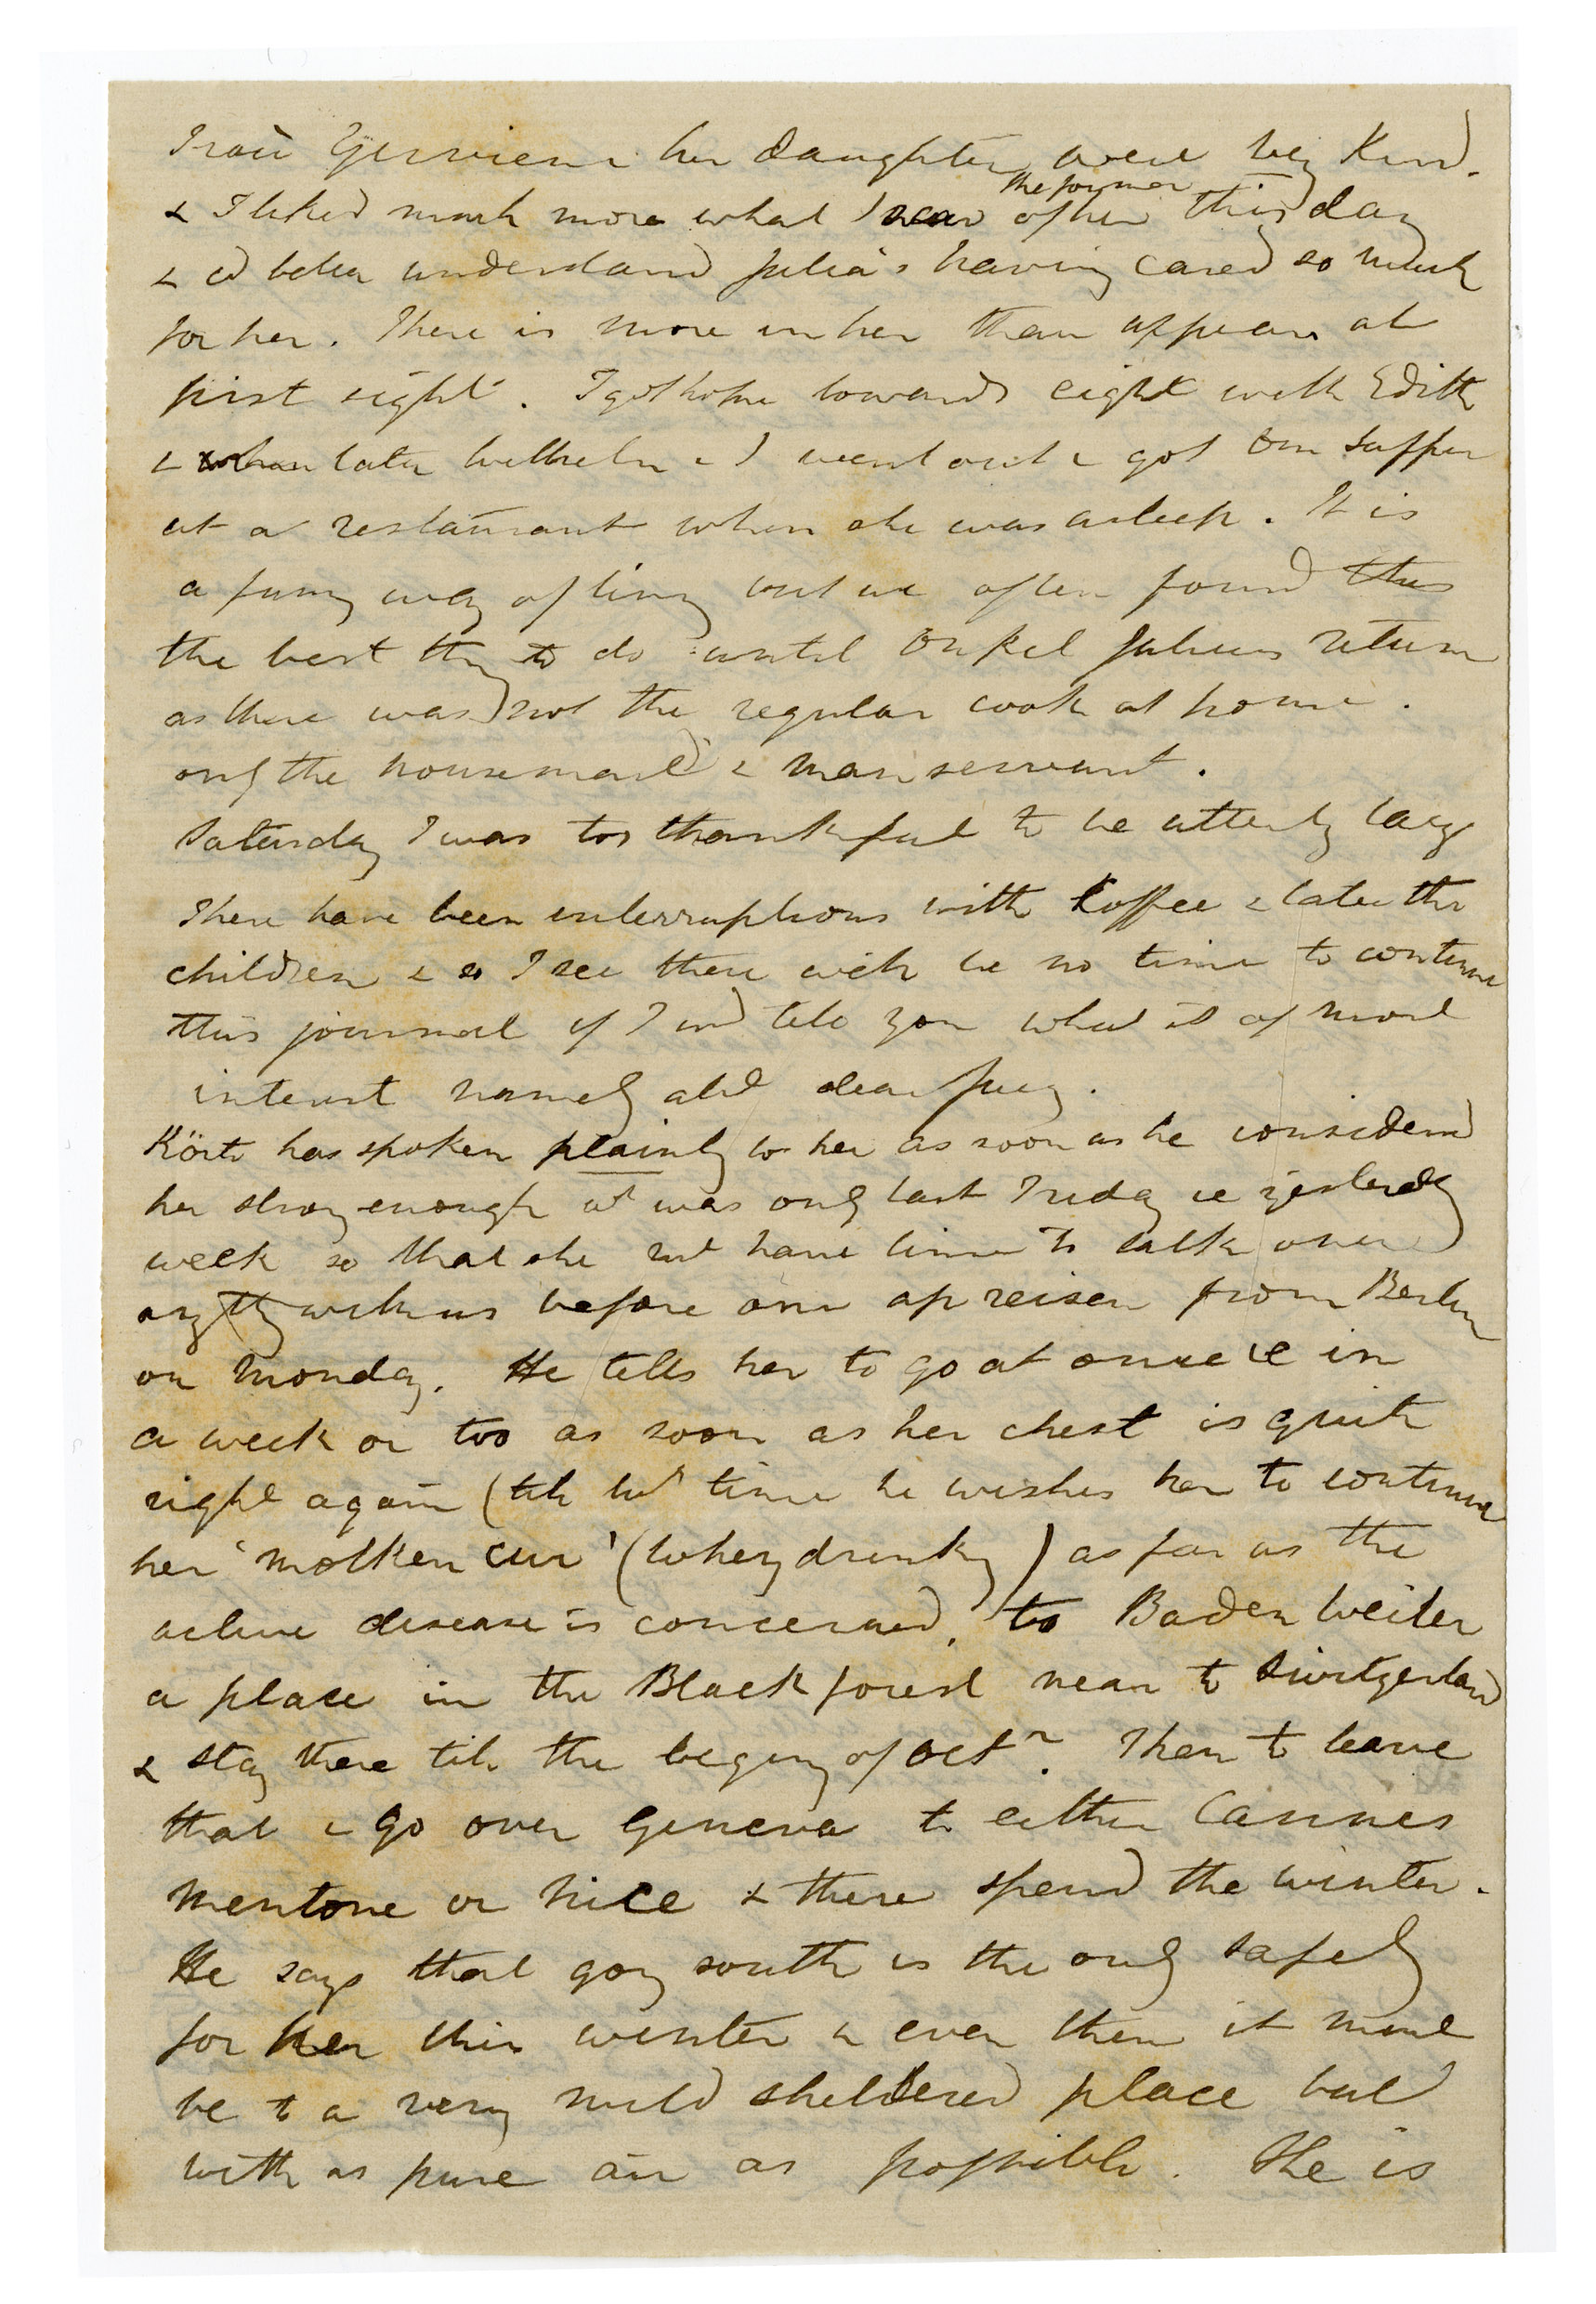 Frau & her daughter were very kind.
& I liked much more what I saw of her the former this day
& cd better understand Julia's having cared so much
for her. There is more in her than appears at
first sight. I got home towards eight with Edith
& later Wilhelm & I went out & got our supper
at a restaurant when she was asleep. It is
a funny way of living but we often found this
the best thg to do until Onkel Julius return
as there was not the regular cook at home.
only the housemaid & manservant.
Saturday I was too thankful to be utterly lazy
There have been interruptions with Koffee & later the
children & so I see there will be no time to continue
this journal if I wd tell you what is of most
interest namely abt dear Jucy.
Körte has spoken plainly to her as soon as he considered
her strong enough wh was only last Friday ie yesterday
week so that she cd have time to talk over
anythg with us before our apreisen from Berlin
on Monday. He tells her to go at once ie in
a week or too as soon as her chest is quite
right again (till wh time he wishes her to continue
her 'Molken cur' (whey drinkg) as far as the
active disease is concerned, to Badenweiler
a place in the Black forest near to Switzerland
& stay there till the begg of Octr. Then to leave
that & go over Geneva to either Cannes
Mentone or Nice & there spend the winter.
He says that gog south is the only safety
for her this winter & even then it must
be to a very mild sheltered place but
with as pure air as possible. She is